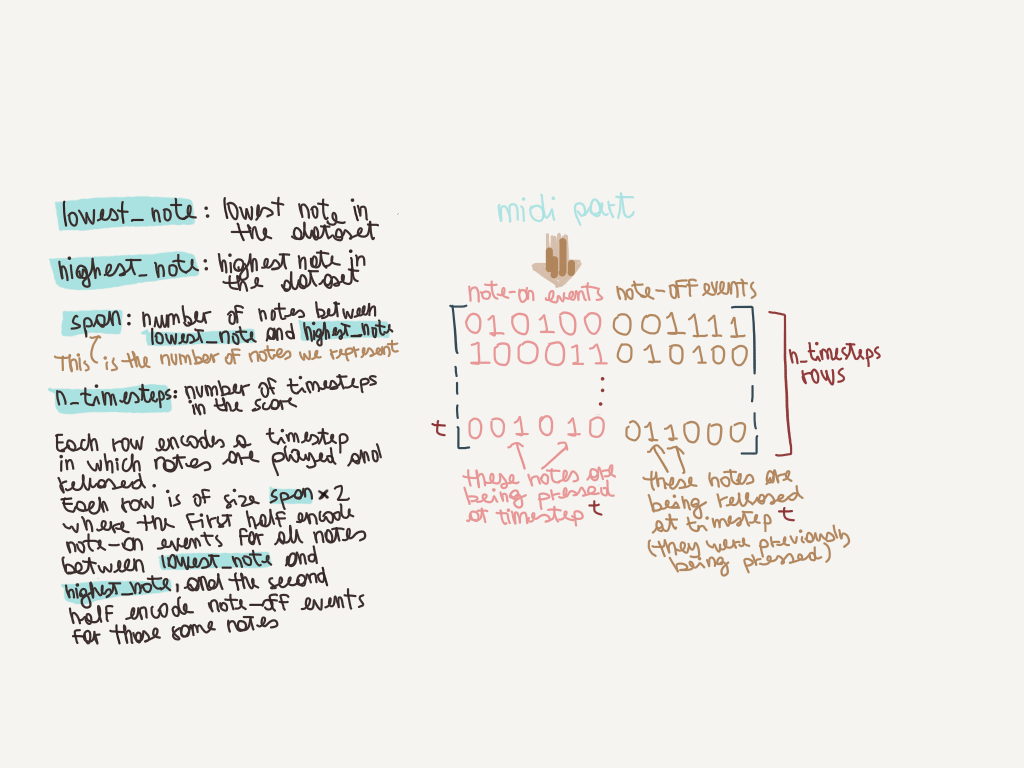 lowest_note: lowest note in
the dataset
highest_note: highest note in
the dataset
span: number of notes between
lowest_note and highest_note
This is the number of notes we represent
n_timesteps: number of timesteps
in the score
Each row encodes a timestep
in which notes are played and
released.
Each row is of size span x 2
where the first half encode
note-on events for all notes
between lowest_note and
highest_note, and the second
half encode note-off events
for those same notes
midi part
note-on events note-off events
0 1 0 1 0 0 0 0 1 1 1 1
1 0 0 0 1 1 0 1 0 1 0 0
n_timesteps
rows
t 0 0 1 0 1 0 0 1 1 0 0 0
these notes are
being pressed
at timestep t
these notes are
being released
at timestep t
(they were previously
being pressed)